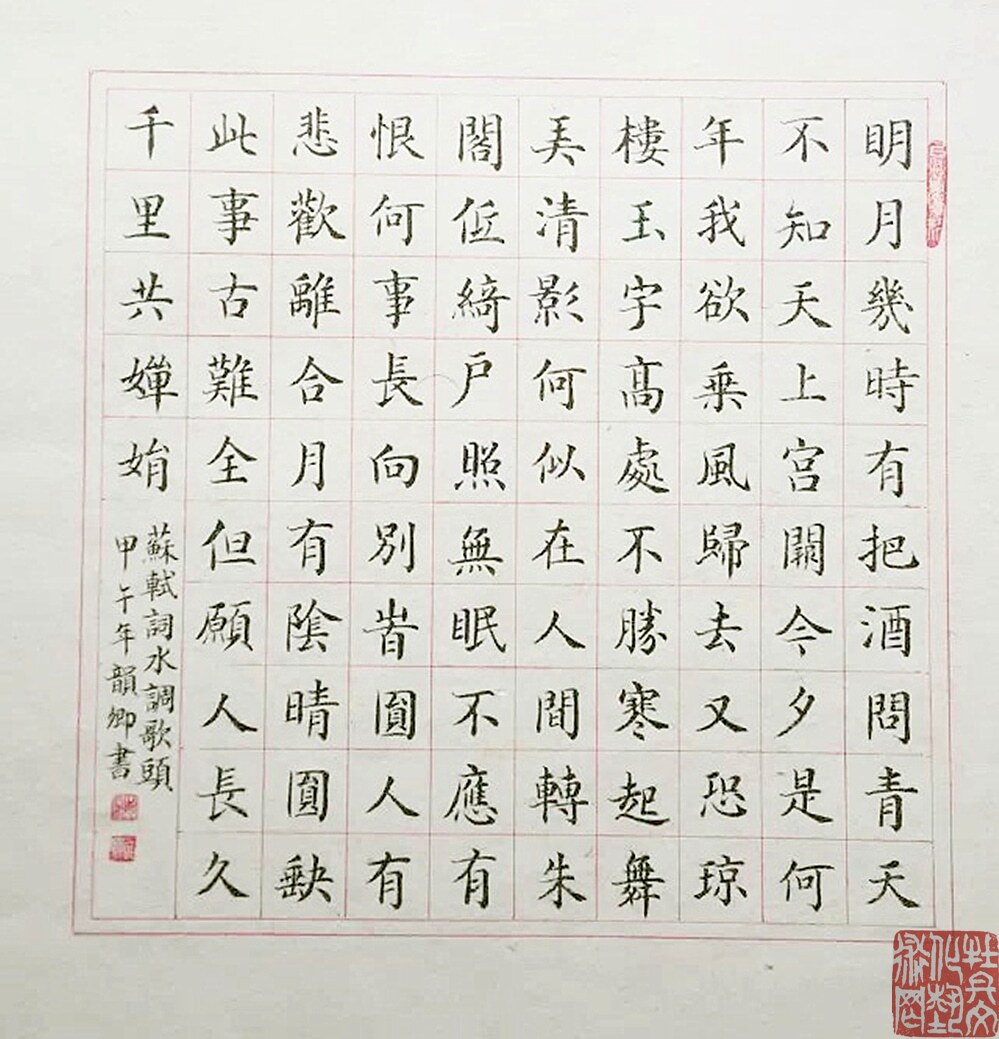 明月幾時有把酒問青天
不知天上宫闕今夕是何
年我欲乘風歸去又恐琼
樓玉宇髙處不勝寒起舞
弄清影何似在人間轉朱
閣低綺户照無眠不應有
恨何事長向别旹圓人有
悲歡離合月有陰晴圓缺
此事古難全但願人長久
千里共嬋娟
蘇軾詞水調歌頭
甲午年韻卿書